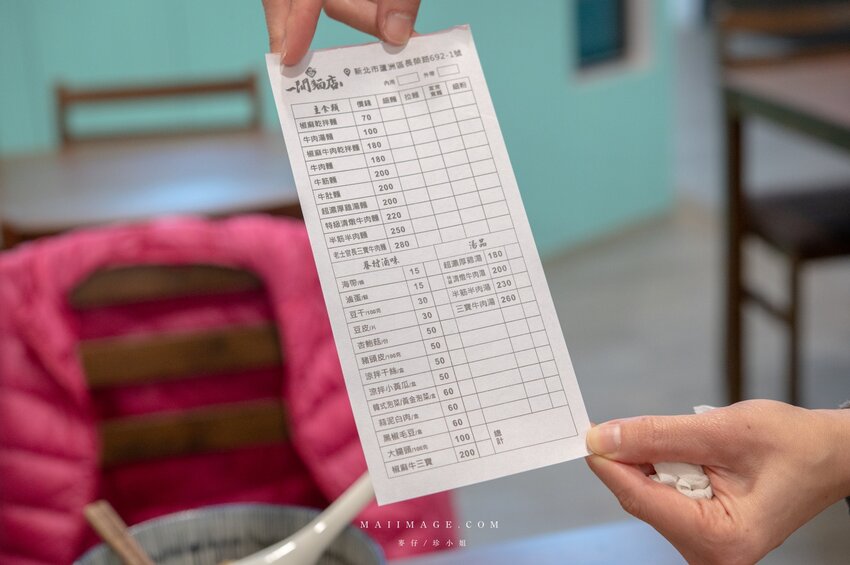 一間麵店 新北市蘆洲區長榮路692-1號
內用 外帶
主食類 價錢 細麵 拉麵 家常寬麵 細粉
椒麻乾拌麵 70
牛肉湯麵 100
椒麻牛肉乾拌麵 180
牛肉麵 180
牛筋麵 200
牛肚麵 200
超濃厚雞湯麵 200
特級清燉牛肉麵 220
半筋半肉麵 250
老士官長三寶牛肉麵 280
眷村滷味 湯品
海帶 15 超濃厚雞湯 180
滷蛋/顆 15 清燉牛肉湯 200
豆干/100克 30 半筋半肉湯 230
豆皮/片 30 三寶牛肉湯 260
杏鮑菇/份 50
豬頭皮/100克 50
涼拌干絲/盒 50
涼拌小黃瓜/盒 50
韓式泡菜/黃金泡菜/盒 60
蒜泥白肉/盒 60
黑椒毛豆/盒 60
大腸頭/100克 100 總計
椒麻牛三寶 200
MAIIMAGE.COM
麥仔/珍小姐